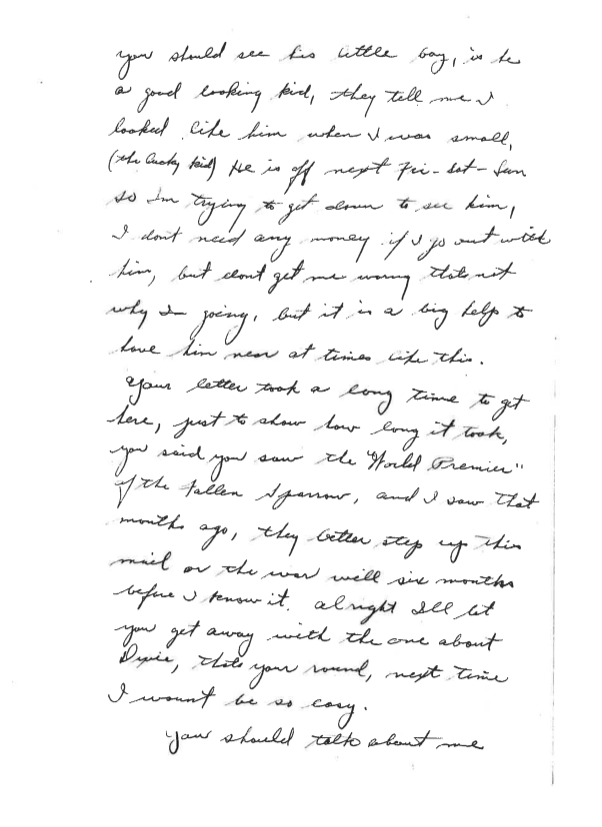 you should see his little boy, is he
a good looking kid, they tell me I
looked like him when I was small,
(the lucky kid) He is off next Fri-Sat-Sun
so Im trying to get down to see him,
I dont need any money if I go out with
him, but dont get me wrong thats not
why I'm going, but it is a big help to
have him near at times like this.
Your letter took a long time to get
here, just to show how long it took,
you said you saw the "World Premier"
of the Fallen Sparrow, and I saw that
months ago, they better step up this
mail or the war will six months
before I know it. alright Ill let
you get away with the one about
Dixie, thats your round, next time
I wount be so easy.
You should talk about me